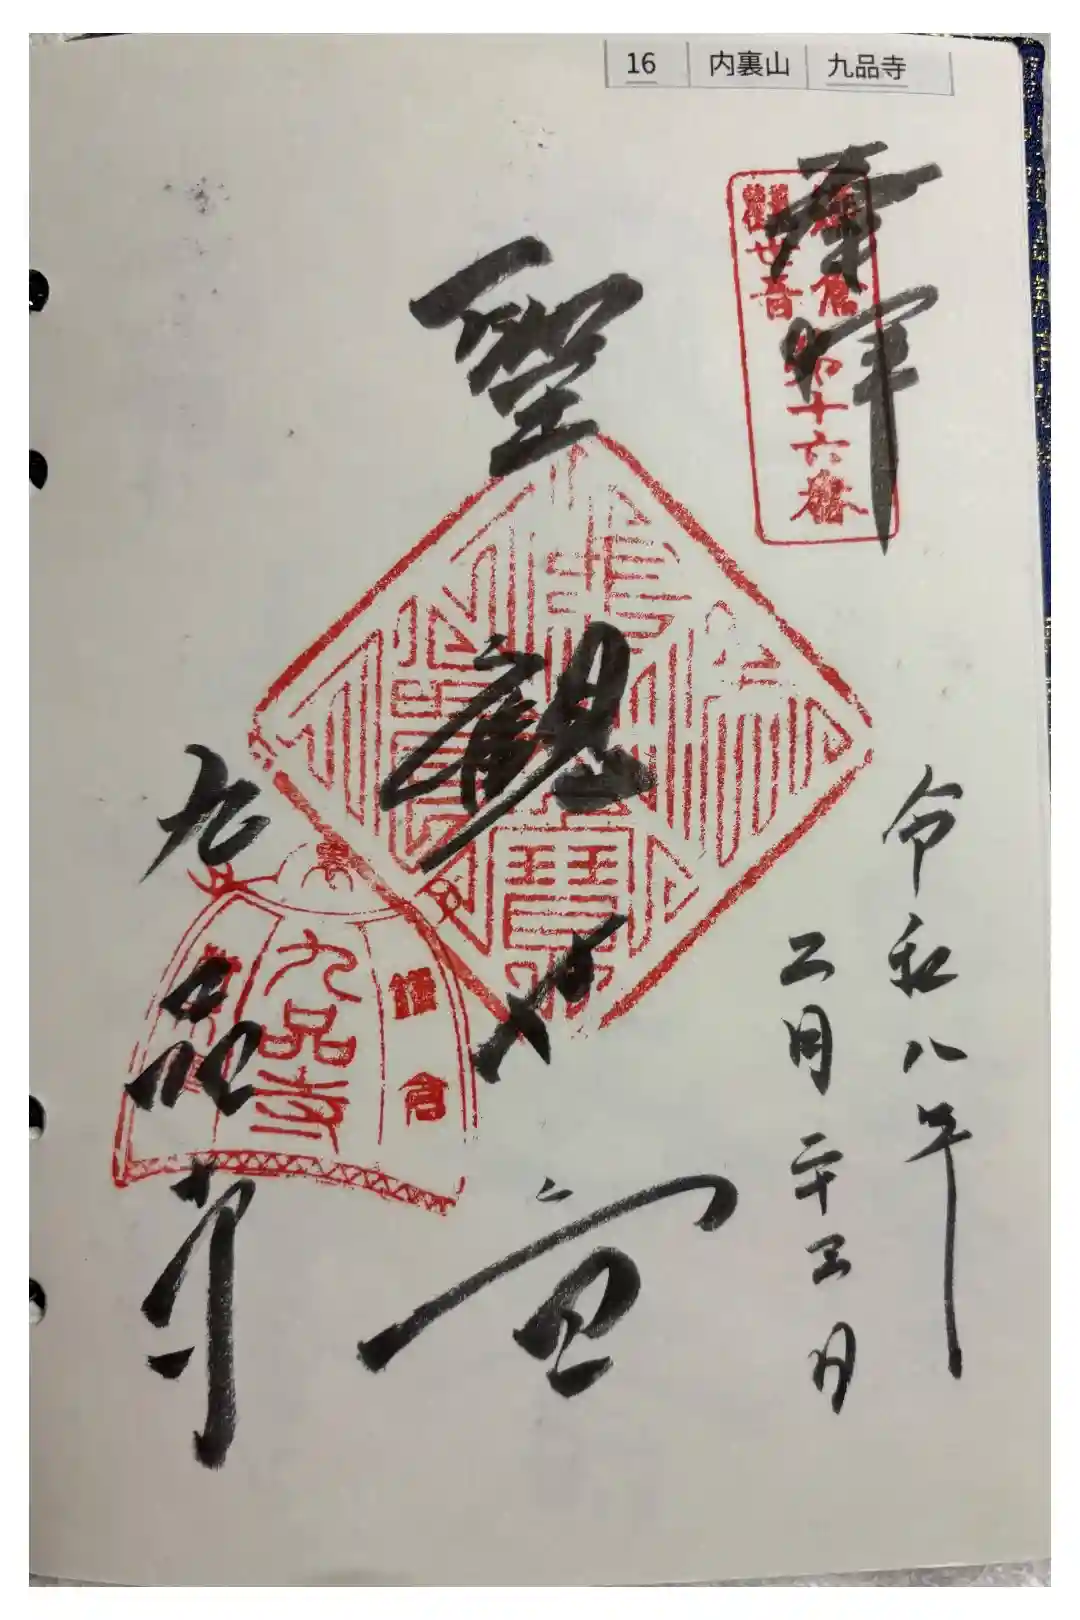 16 内裏山 九品寺
奉拝
鎌倉
観世音
第十六番
令和八年
二月二十三日
聖観世音
佛法僧寶
九品寺
鎌倉
九品寺